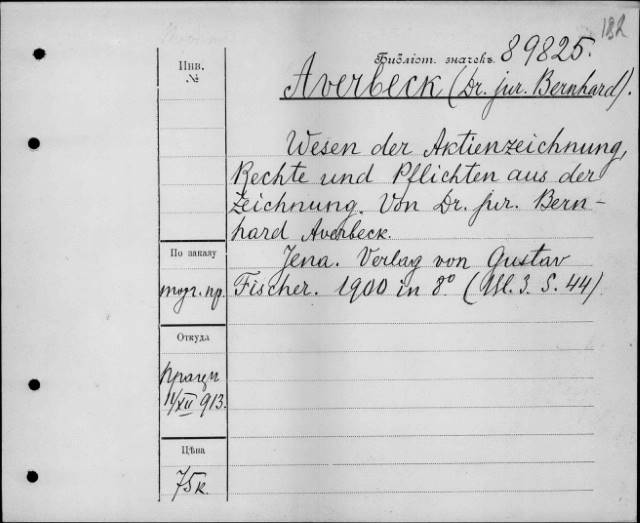 182
Библіот. значекъ 89825.
Инв.
№
Averbeck (Dr. jur. Bernhard).
Wesen der Aktienzeichnung,
Rechte und Pflichten aus der
Zeichnung. Von Dr. jur. Bern-
hard Averbeck.
Jena. Verlag von Gustav
Fischer. 1900 in 8° (III. 3. S. 44)
По заказу
тор. пр.
Откуда
11/XII 913.
Цѣна
75к.